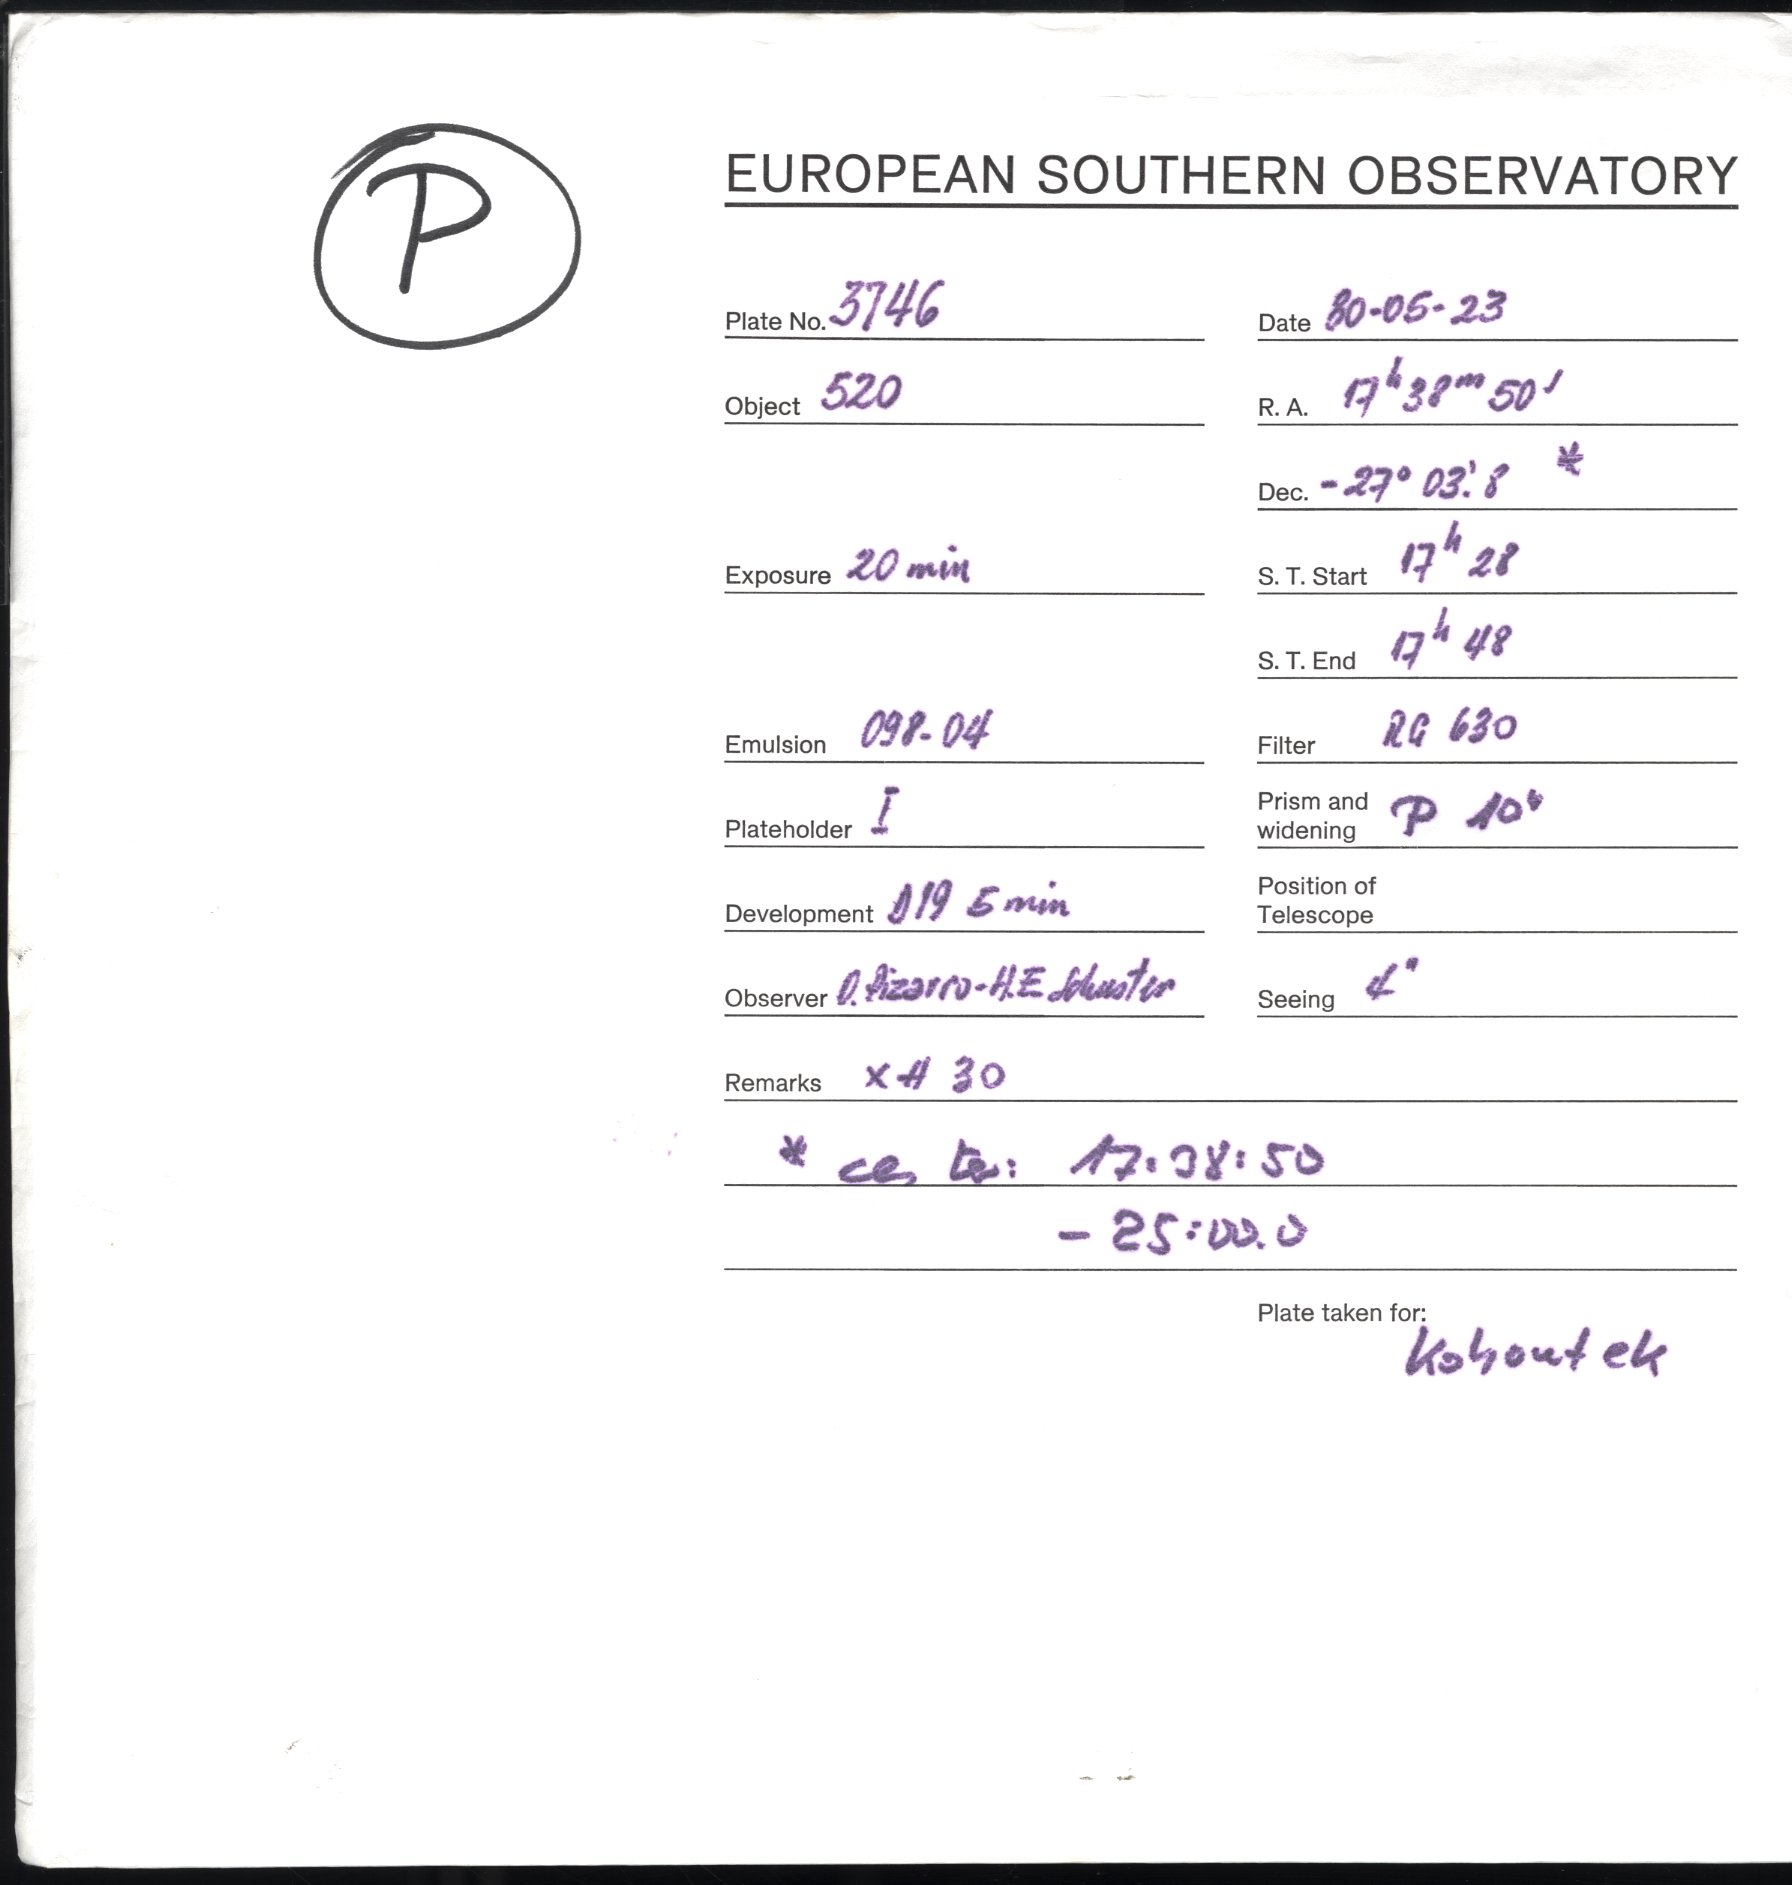 P
EUROPEAN SOUTHERN OBSERVATORY
Plate No. 3746
Date 80-05-23
Object 520
R. A. 17h 38m 50s
Dec. -27° 03'.8 *
Exposure 20 min
S. T. Start 17h 28
S. T. End 17h 48
Emulsion 098-04
Filter RG 630
Plateholder I
Prism and widening P 10"
Development D19 5 min
Position of Telescope
Observer O. Pizarro - H.E Schuster
Seeing 4"
Remarks X H 30
* center: 17:38:50
- 25:00.0
Plate taken for:
Kohoutek